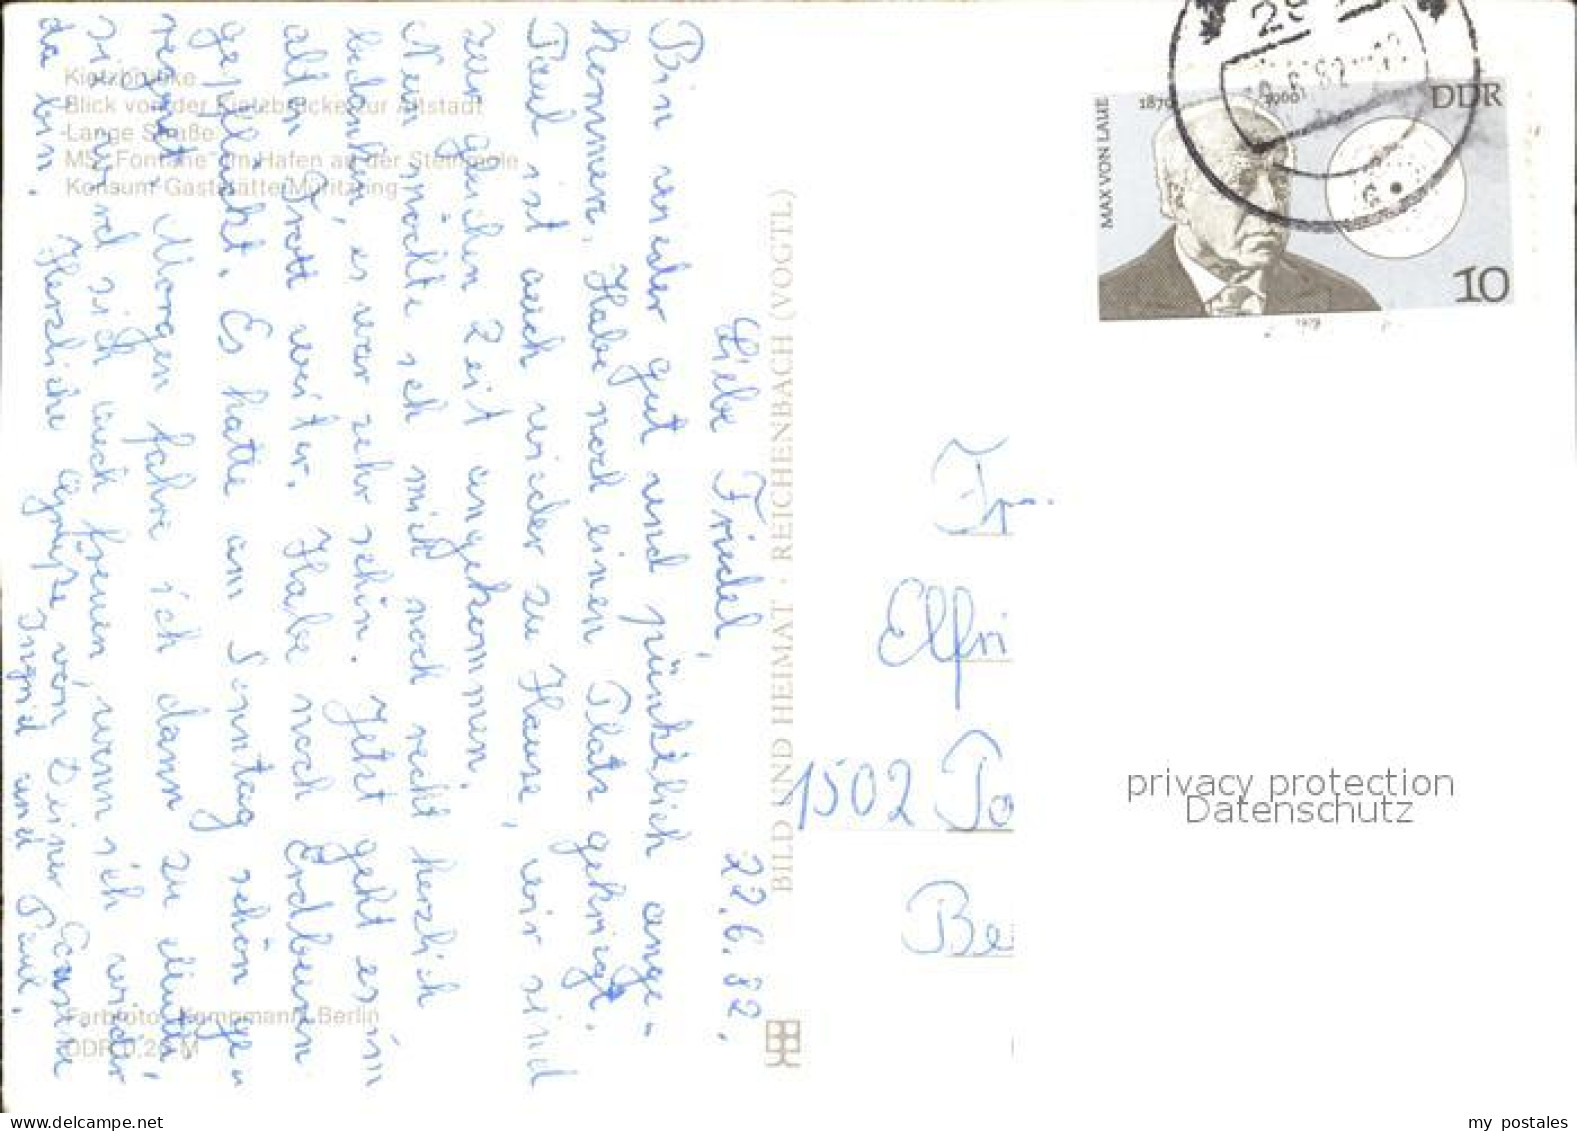 Kietzbrücke
Blick von der Kietzbrücke zur Altstadt
Lange Straße
MS „Fontane“ im Hafen an der Steinmole
Konsum Gaststätte Müritzring
Liebe Friedel, 22.6.82.
Bin wieder gut und pünktlich ange-
kommen. Habe noch einen Platz gekriegt.
Paul ist auch wieder zu Hause, wir sind
zur gleichen Zeit angekommen.
Nun möchte ich mich noch recht herzlich
bedanken, es war sehr schön. Jetzt geht es im
alten Trott weiter. Habe noch Erdbeeren
gepflückt. Es hatte am Sonntag schön ge-
regnet. Morgen fahre ich dann zu Mutti,
sie wird sich auch freuen, wenn ich wieder
da bin. Herzliche Grüße von Deiner Cousine
Ingrid und Paul.
Farbfoto: Kempmann, Berlin
DDR 0,20 M
BILD UND HEIMAT · REICHENBACH (VOGTL)
MAX VON LAUE
1879 1960
DDR
10
1979
Elfri
1502 Po
privacy protection
Datenschutz
my postales